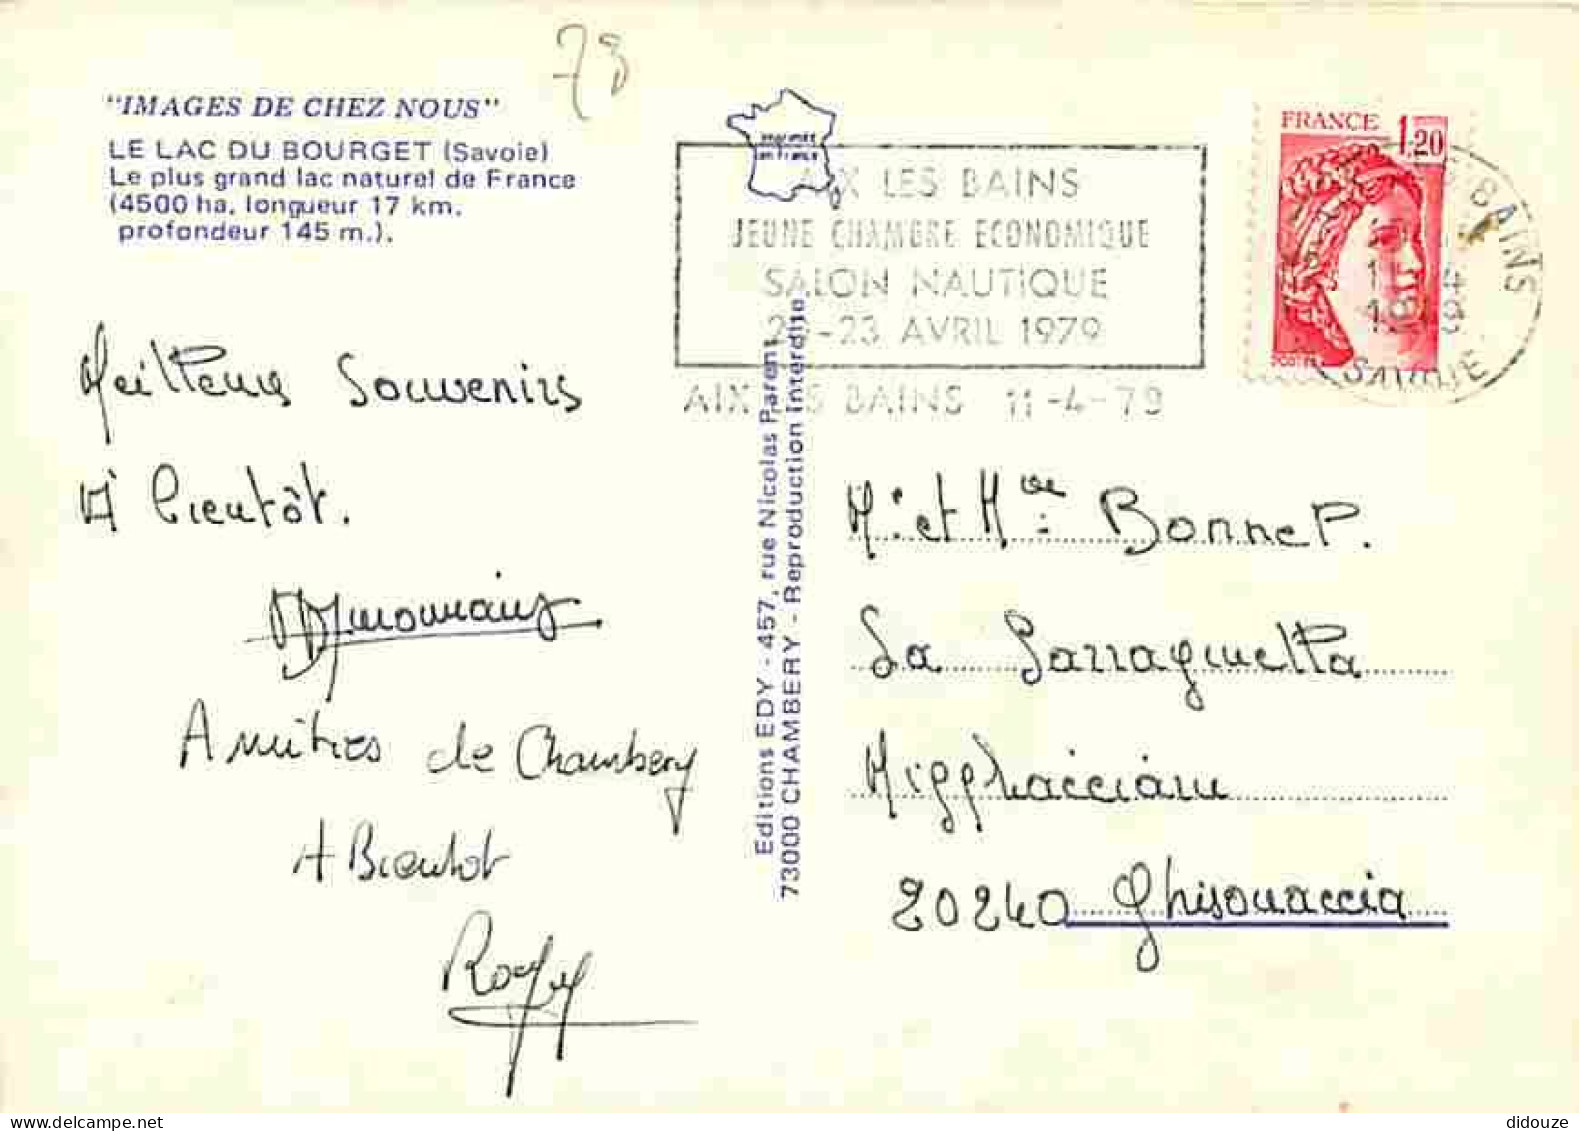 78
"IMAGES DE CHEZ NOUS"
LE LAC DU BOURGET (Savoie)
Le plus grand lac naturel de France
(4500 ha, longueur 17 km,
profondeur 145 m.).
imprimé
en France
AIX LES BAINS
JEUNE CHAMBRE ECONOMIQUE
SALON NAUTIQUE
-23 AVRIL 1979
AIX LES BAINS 11-4-79
FRANCE 1,20
BAINS
SAVOIE
Meilleurs Souvenirs
A bientôt.
Amitiés de Chambery
A Bientot
Editions EDY - 457, rue Nicolas Parent
73000 CHAMBERY - Reproduction interdite
M. et Mme Bonnet P.
La
20240 Ghisonaccia
didouze